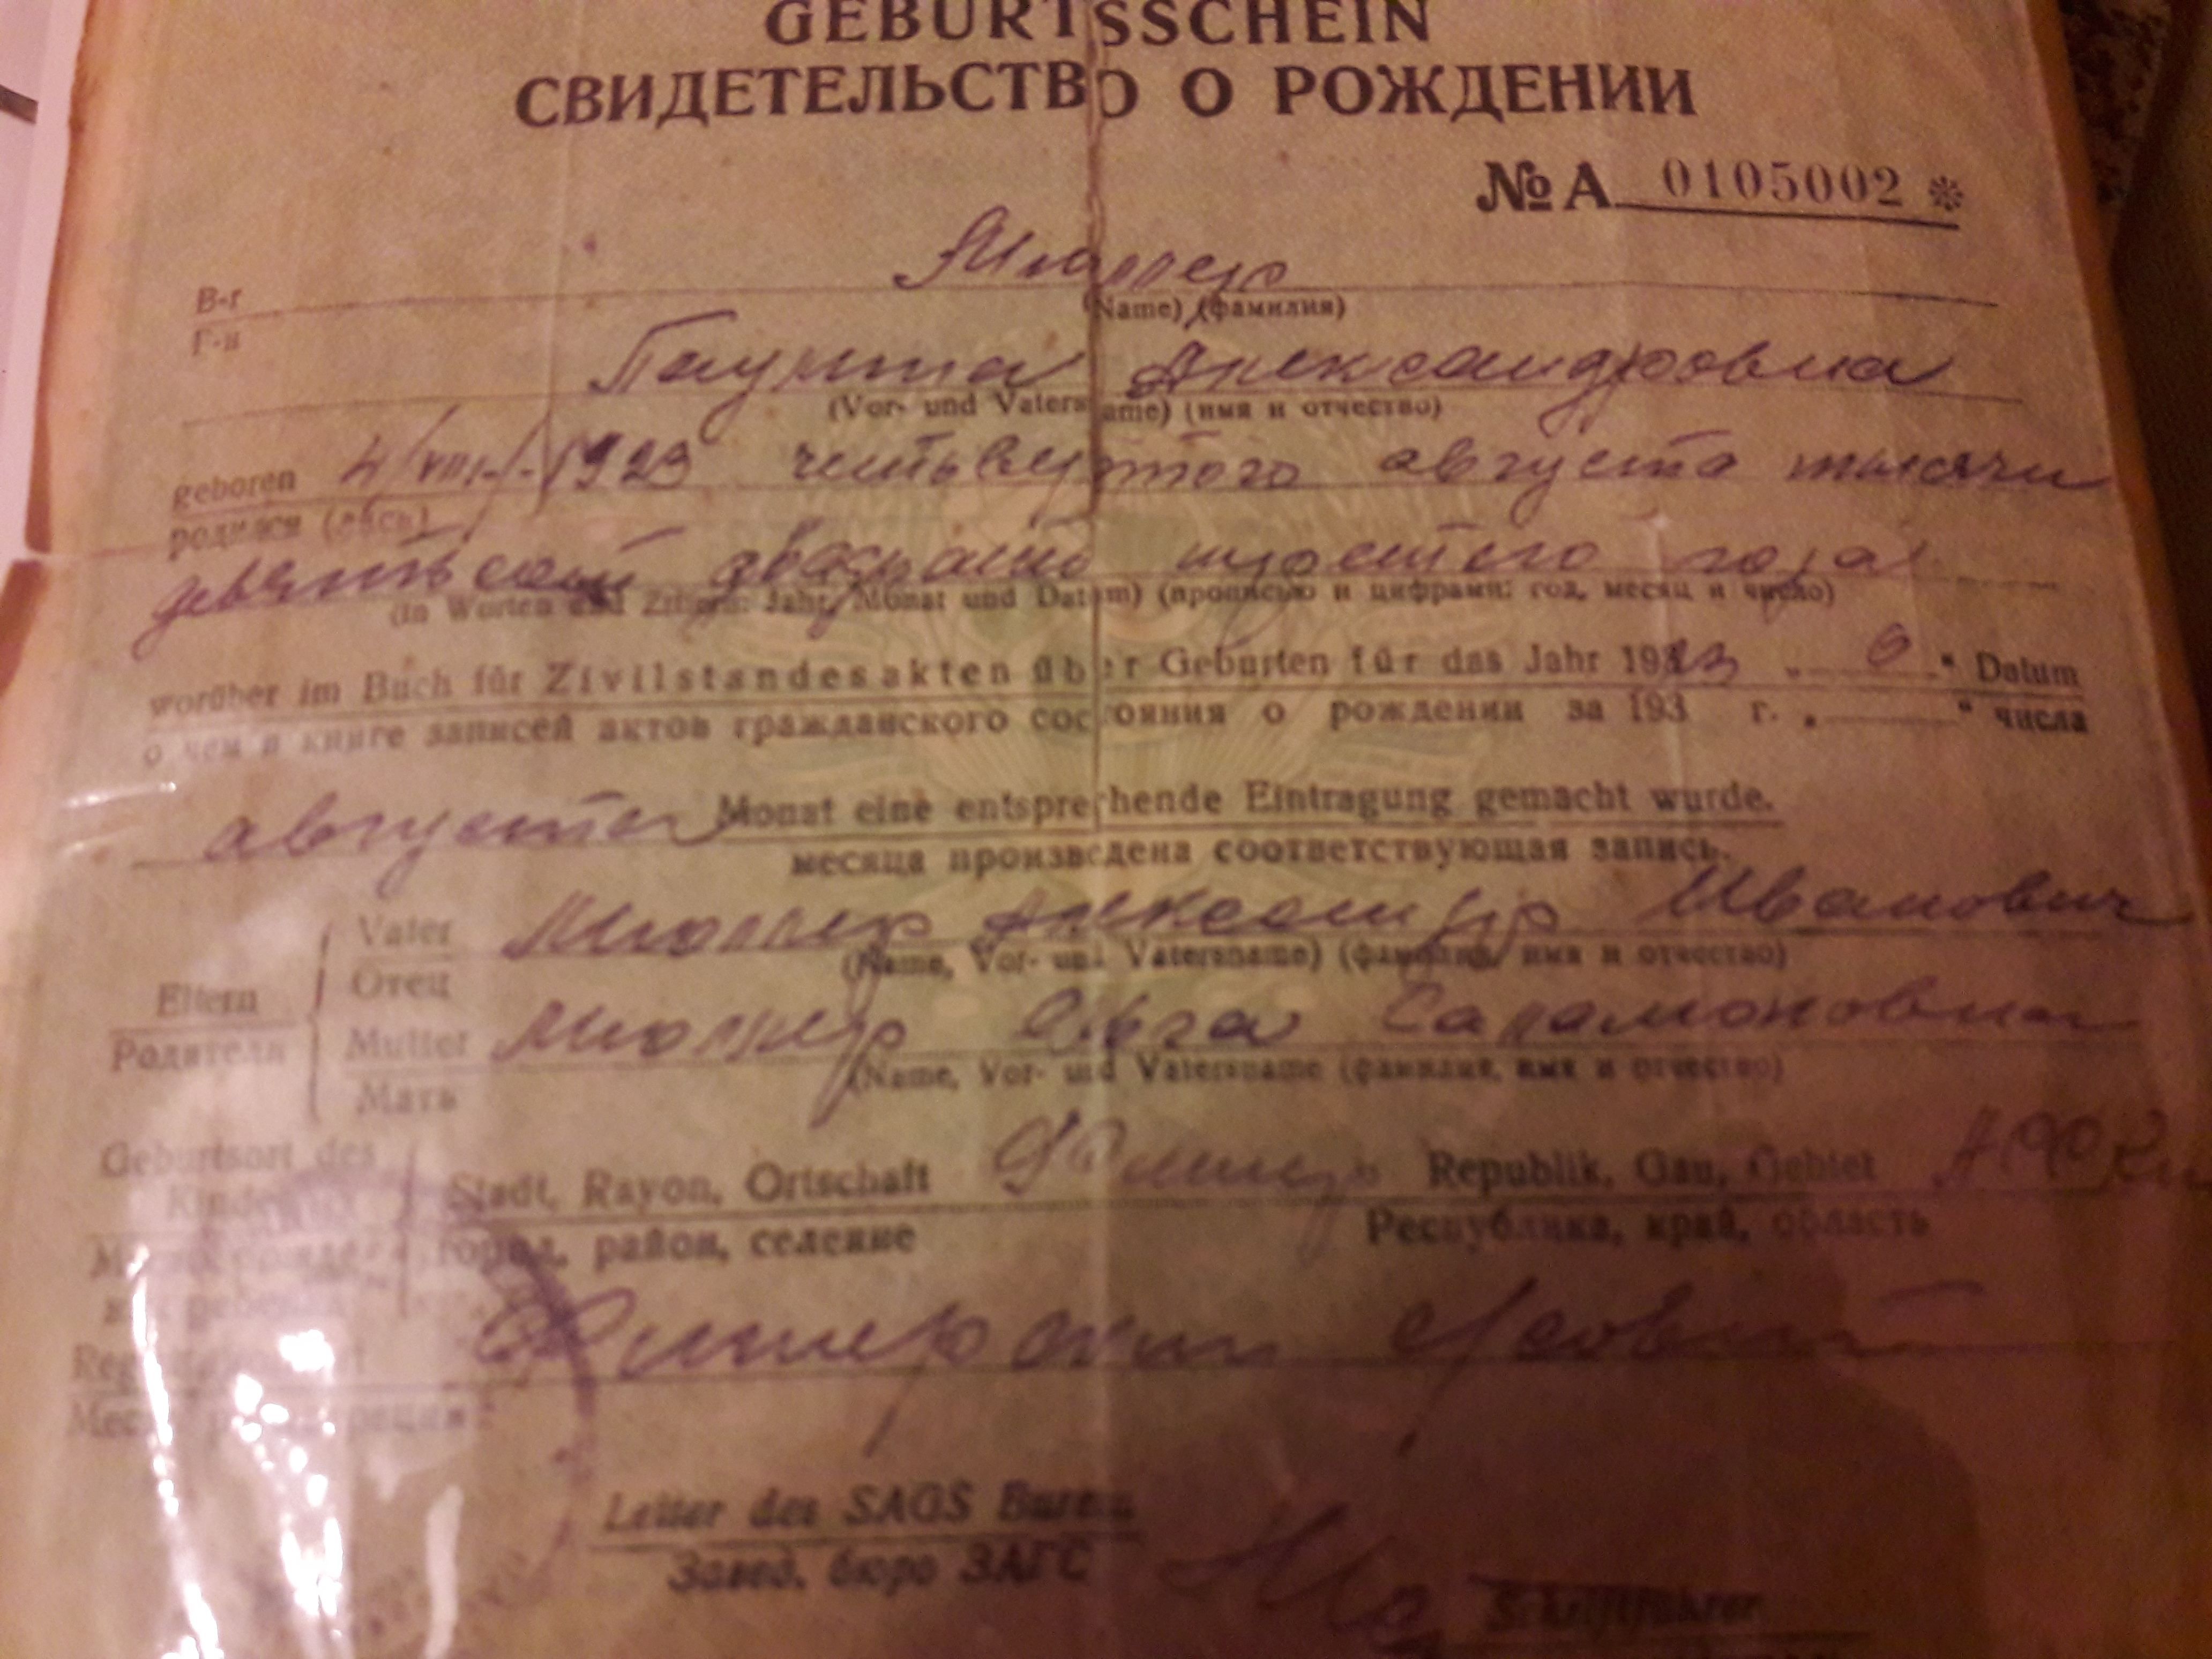 GEBURTSSCHEIN
СВИДЕТЕЛЬСТВО О РОЖДЕНИИ
№ А 0105002 *
Мюллер
В-г
Г-н
(Name) (фамилия)
Паулина Александровна
(Vor- und Vatersname) (имя и отчество)
geboren 4/VIII-1923 четьвертого августа тысячи
родился (лась)
девятьсот двадцать третего года
(in Worten und Ziffern: Jahr, Monat und Datum) (прописью и цифрами: год, месяц и число)
worüber im Buch für Zivilstandesakten über Geburten für das Jahr 1923 „ 6 “ Datum
о чем в книге записей актов гражданского состояния о рождении за 193 г. „ “ числа
августа Monat eine entsprechende Eintragung gemacht wurde.
месяца произведена соответствующая запись.
Vater Мюллер Александр Иванович
(Name, Vor- und Vatersname) (фамилия, имя и отчество)
Отец
Eltern
Родители
Mutter Мюллер Ольга Саламоновна
(Name, Vor- und Vatersname (фамилия, имя и отчество)
Мать
Geburtsort des
Stadt, Rayon, Ortschaft Republik, Gau, Gebiet
город, район, селение Республика, край, область
Leiter des SAGS Bureau
Завед. бюро ЗАГС
Schriftführer